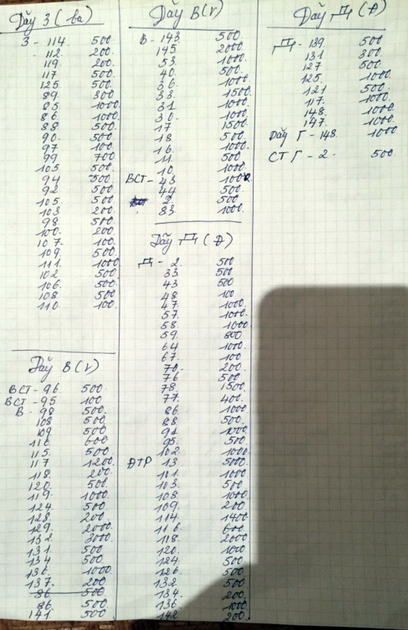 Dãy З (ba)
З - 114. 500.
112. 200.
119. 200
117 500
125 500
89 300
85. 1000
86. 1000
88. 500
90. 500
97 100
99 700
103. 500
94 500
92 500
105. 500
103 200
98 500
100. 200
107. 100
109 500
111. 1000
102 500
106. 500
108 500
110 100
Dãy B(v)
BCT - 96 500
BCT - 95 100
B - 98 500
108 500
109 500
116 600
115. 500
117 1200
118. 200
120. 500
119. 1000
124. 500
128. 200
129. 2000
132 3000
131 500
134 500
136 1000
137. 200
86 500
86. 500
141. 500
Dãy B(v)
B - 143 500
145 2000
53 1000
40 500
36 1000
33 1500
31 1000
30 1000
17 1500
18 500
16 1000
11 500
10 1000
BCT - 43 1000
44 500
2 500
83 1000
Dãy Д (Đ)
Д - 2. 500
33 500
43 500
48 100
47 1000
57. 1000
58. 1000
59. 500
64 1000
67. 100
70. 200
76 500
78. 1500
77. 400
86 1000
88 500
94 1000
95. 500
102 1000
ĐTP 13 5000
111 1000
103. 500
108 1000
109. 200
114 1400
116 600
118 2000
120. 1000
124 500
126 500
132 500
134. 200
136. 1000
142 200
Dãy Д (Đ)
Д - 139. 500
131 300
127 500
125. 1000
121 500
117. 1000
148. 1000
147. 1000
Dãy Г - 148. 1000
CT Г - 2. 500